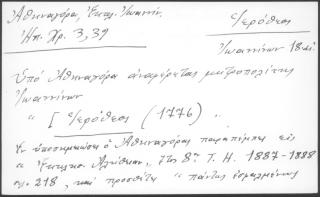 Ἀθηναγόρα, Ἐκκλ. Ἰωαννίν.
Ἠπ. Χρ. 3, 39
Ἱερόθεος
Ἰωαννίνων 18
Ὑπό Ἀθηναγόρα ἀναφέρεται μητροπολίτης
Ἰωαννίνων
" [ Ἱερόθεος (1776) "
Ἐν ὑποσημειώσει ὁ Ἀθηναγόρας παραπέμπει εἰς
"Ἐκκλησ. Ἀλήθειαν, ἔτος 8ον Τ. Η. 1887-1888
σελ. 218, καί προσθέτει " πάντως ἐσφαλμένως